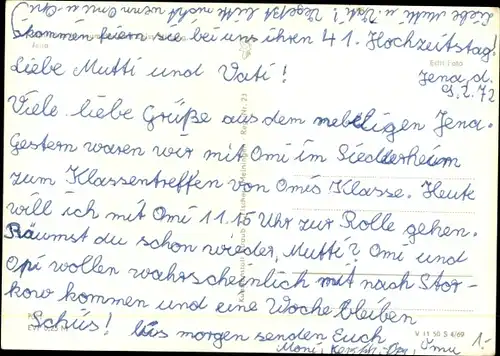 Liebe Mutti u. Vati! Vergeßt bitte nicht wenn Omi u. Opi
kommen feiern sie bei uns ihren 41. Hochzeitstag!
Liebe Mutti und Vati!
Jena, d.
9.2.72
Viele liebe Grüße aus dem nebeligen Jena.
Gestern waren wir mit Omi im Siedlerheim
zum Klassentreffen von Omis Klasse. Heute
will ich mit Omi 11.15 Uhr zur Rolle gehen.
Räumst du schon wieder, Mutti? Omi und
Opi wollen wahrscheinlich mit nach Stor-
kow kommen und eine Woche bleiben
Schüs! Bis morgen senden Euch
Moni, Omi
V 11 50 S 4/69
1.-
Echt Foto
Jena